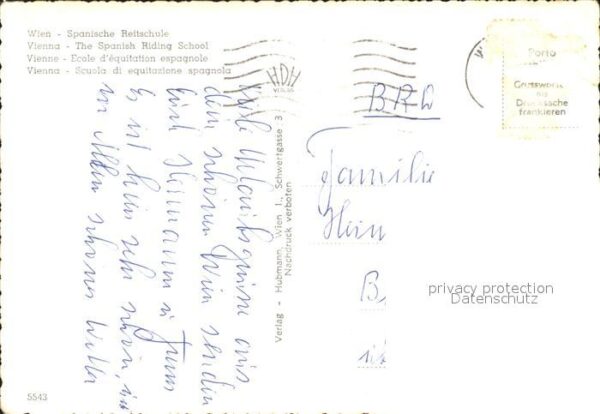 Wien - Spanische Reitschule
Vienna - The Spanish Riding School
Vienne - Ecole d'équitation espagnole
Vienna - Scuola di equitazione spagnola
Viele Urlaubsgrüsse aus
dem schönen Wien senden
Euch Hermann u.
Es ist hier sehr schön,
schönes Wetter
HDH
Verlag - Hubmann, Wien 1., Schwertgasse 3
Nachdruck verboten
BRD
Familie
Hein
B
Porto
Grussworte
als
Drucksache
frankieren
privacy protection
Datenschutz
5543